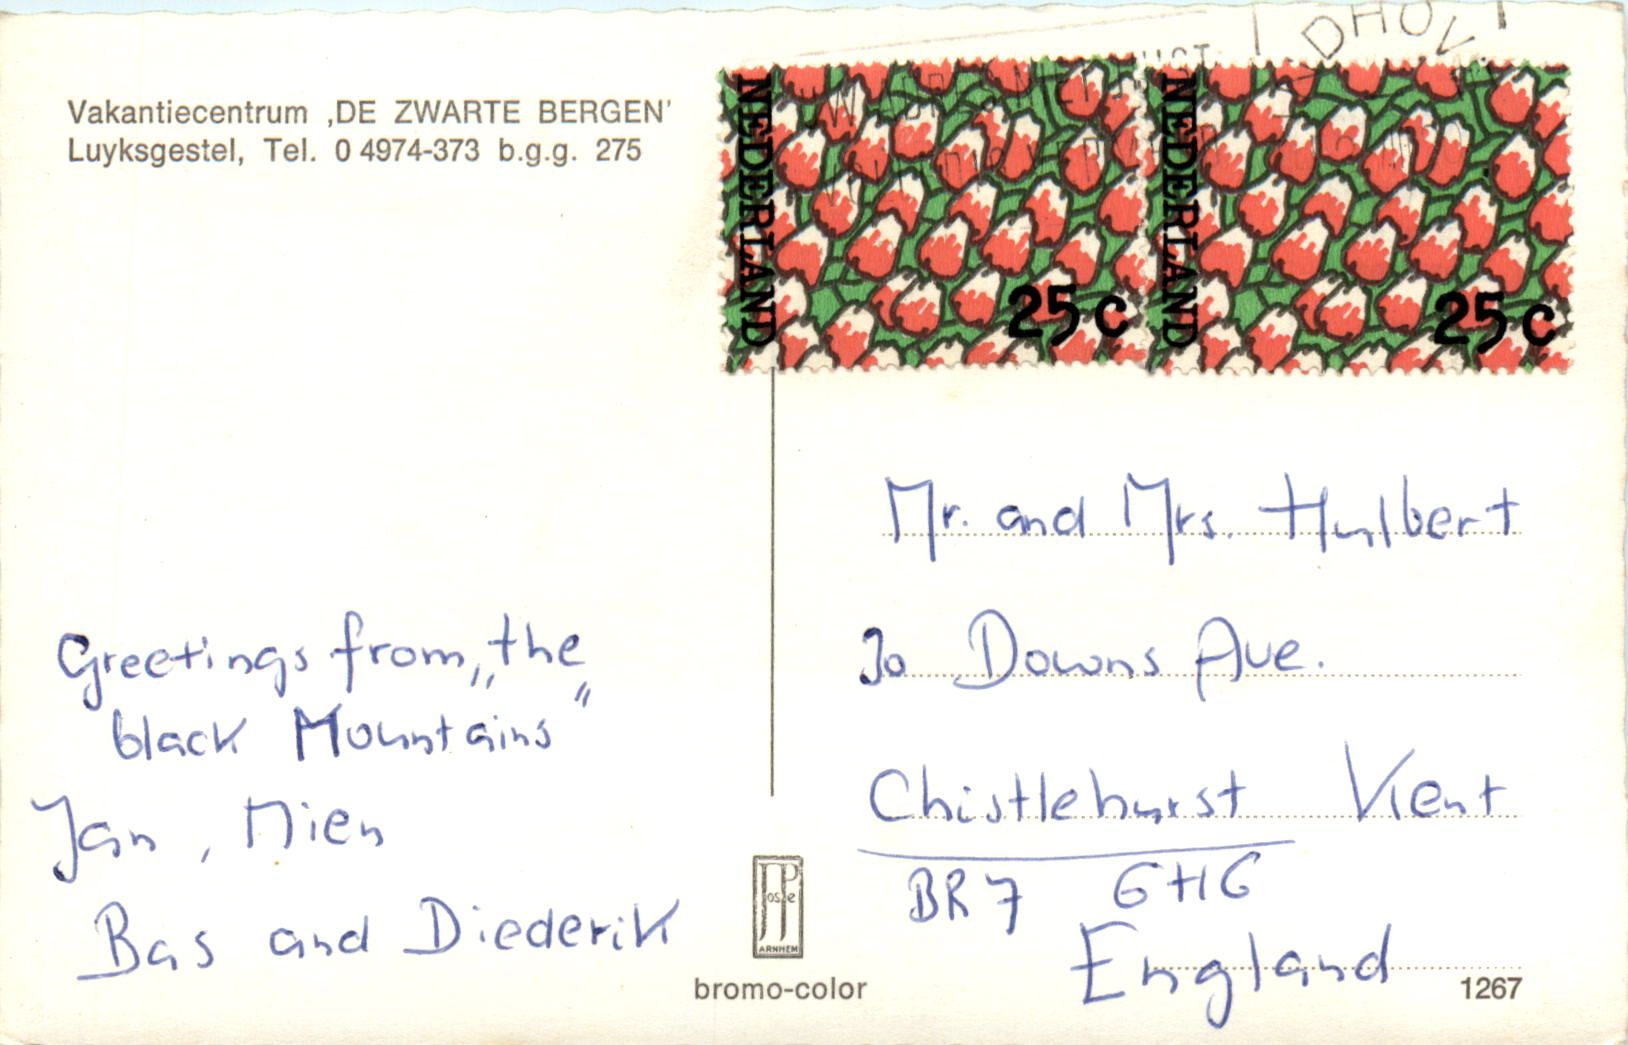 Vakantiecentrum ‚DE ZWARTE BERGEN'
Luyksgestel, Tel. 0 4974-373 b.g.g. 275
NEDERLAND
25 c
NEDERLAND
25 c
DHOV
Greetings from „the
black Mountains"
Jan, Mien
Bas and Diederik
Mr. and Mrs. Hulbert
30 Downs Ave.
Chistlehurst Kent
BR7 6HG
England
JosPe
ARNHEM
bromo-color
1267